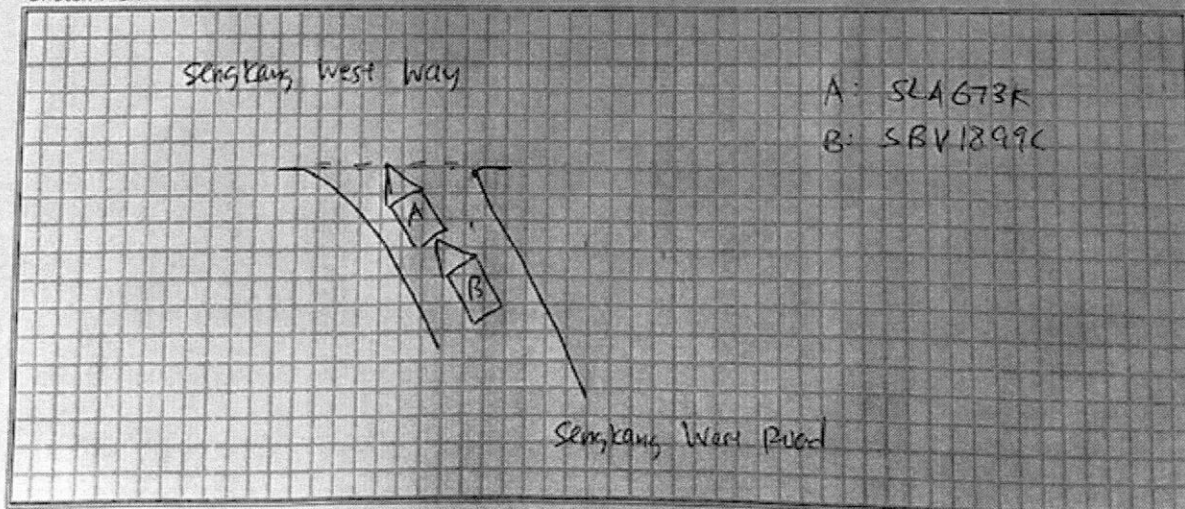 Sengkang West Way
A: SLA673K
B: SBV1899C
A
B
Sengkang West Road